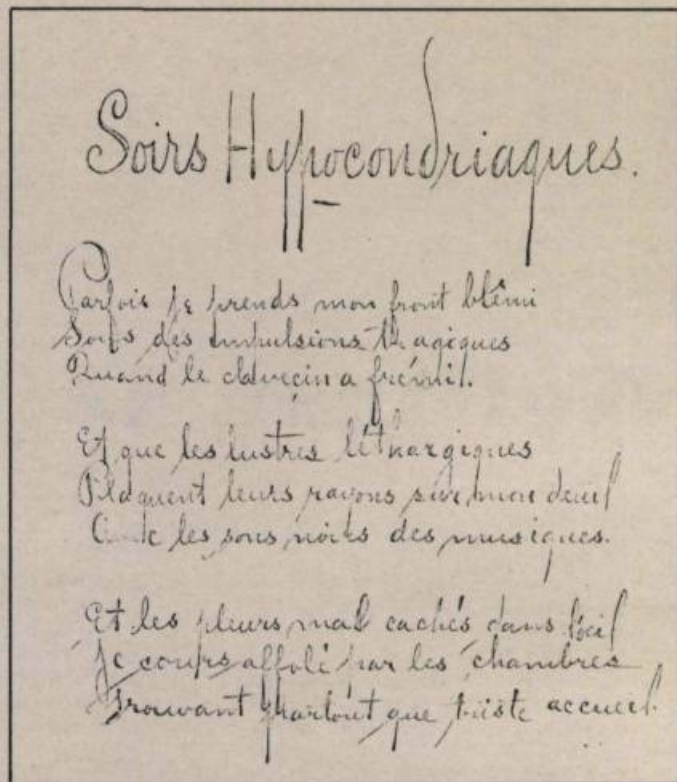 Soirs Hypocondriaques.
Parfois je prends mon front blêmi
Sous des impulsions tragiques
Quand le clavecin a frémi.
Et que les lustres léthargiques
Plaquent leurs rayons sur mon deuil
les sons noirs des musiques.
Et les pleurs mal cachés dans l'œil
Je cours affolé par les chambres
Trouvant partout que triste accueil.